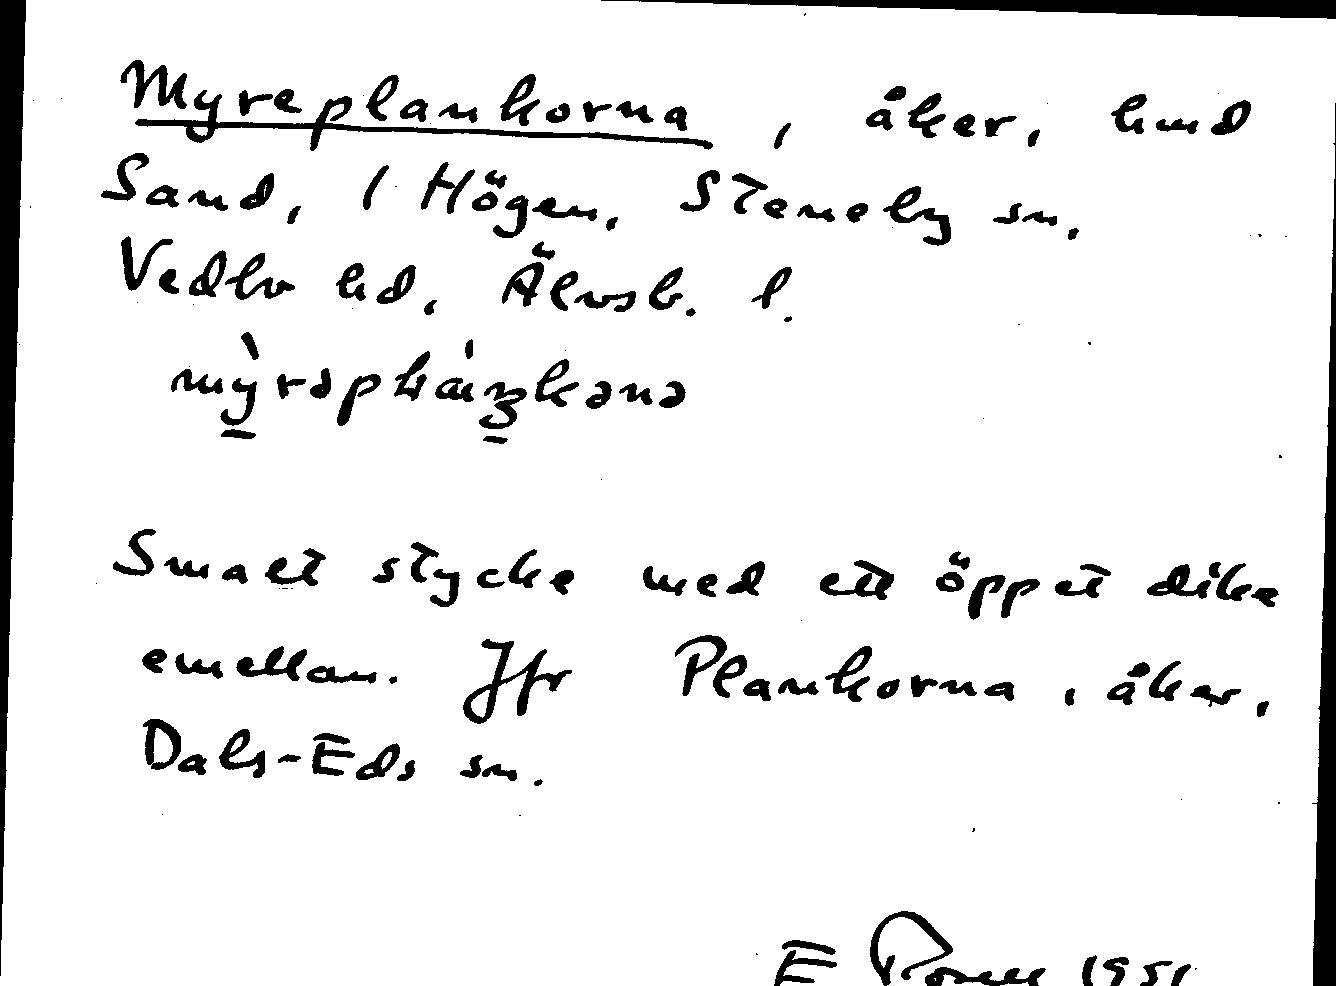 Myreplankorna, åker, hmd
Sand, 1 Högen, Steneby sn,
Vedbo hd, Älvsb. l.
Smalt stycke med ett öppet dike
emellan. Jfr Plankorna, åker,
Dals-Eds sn.
E 1951